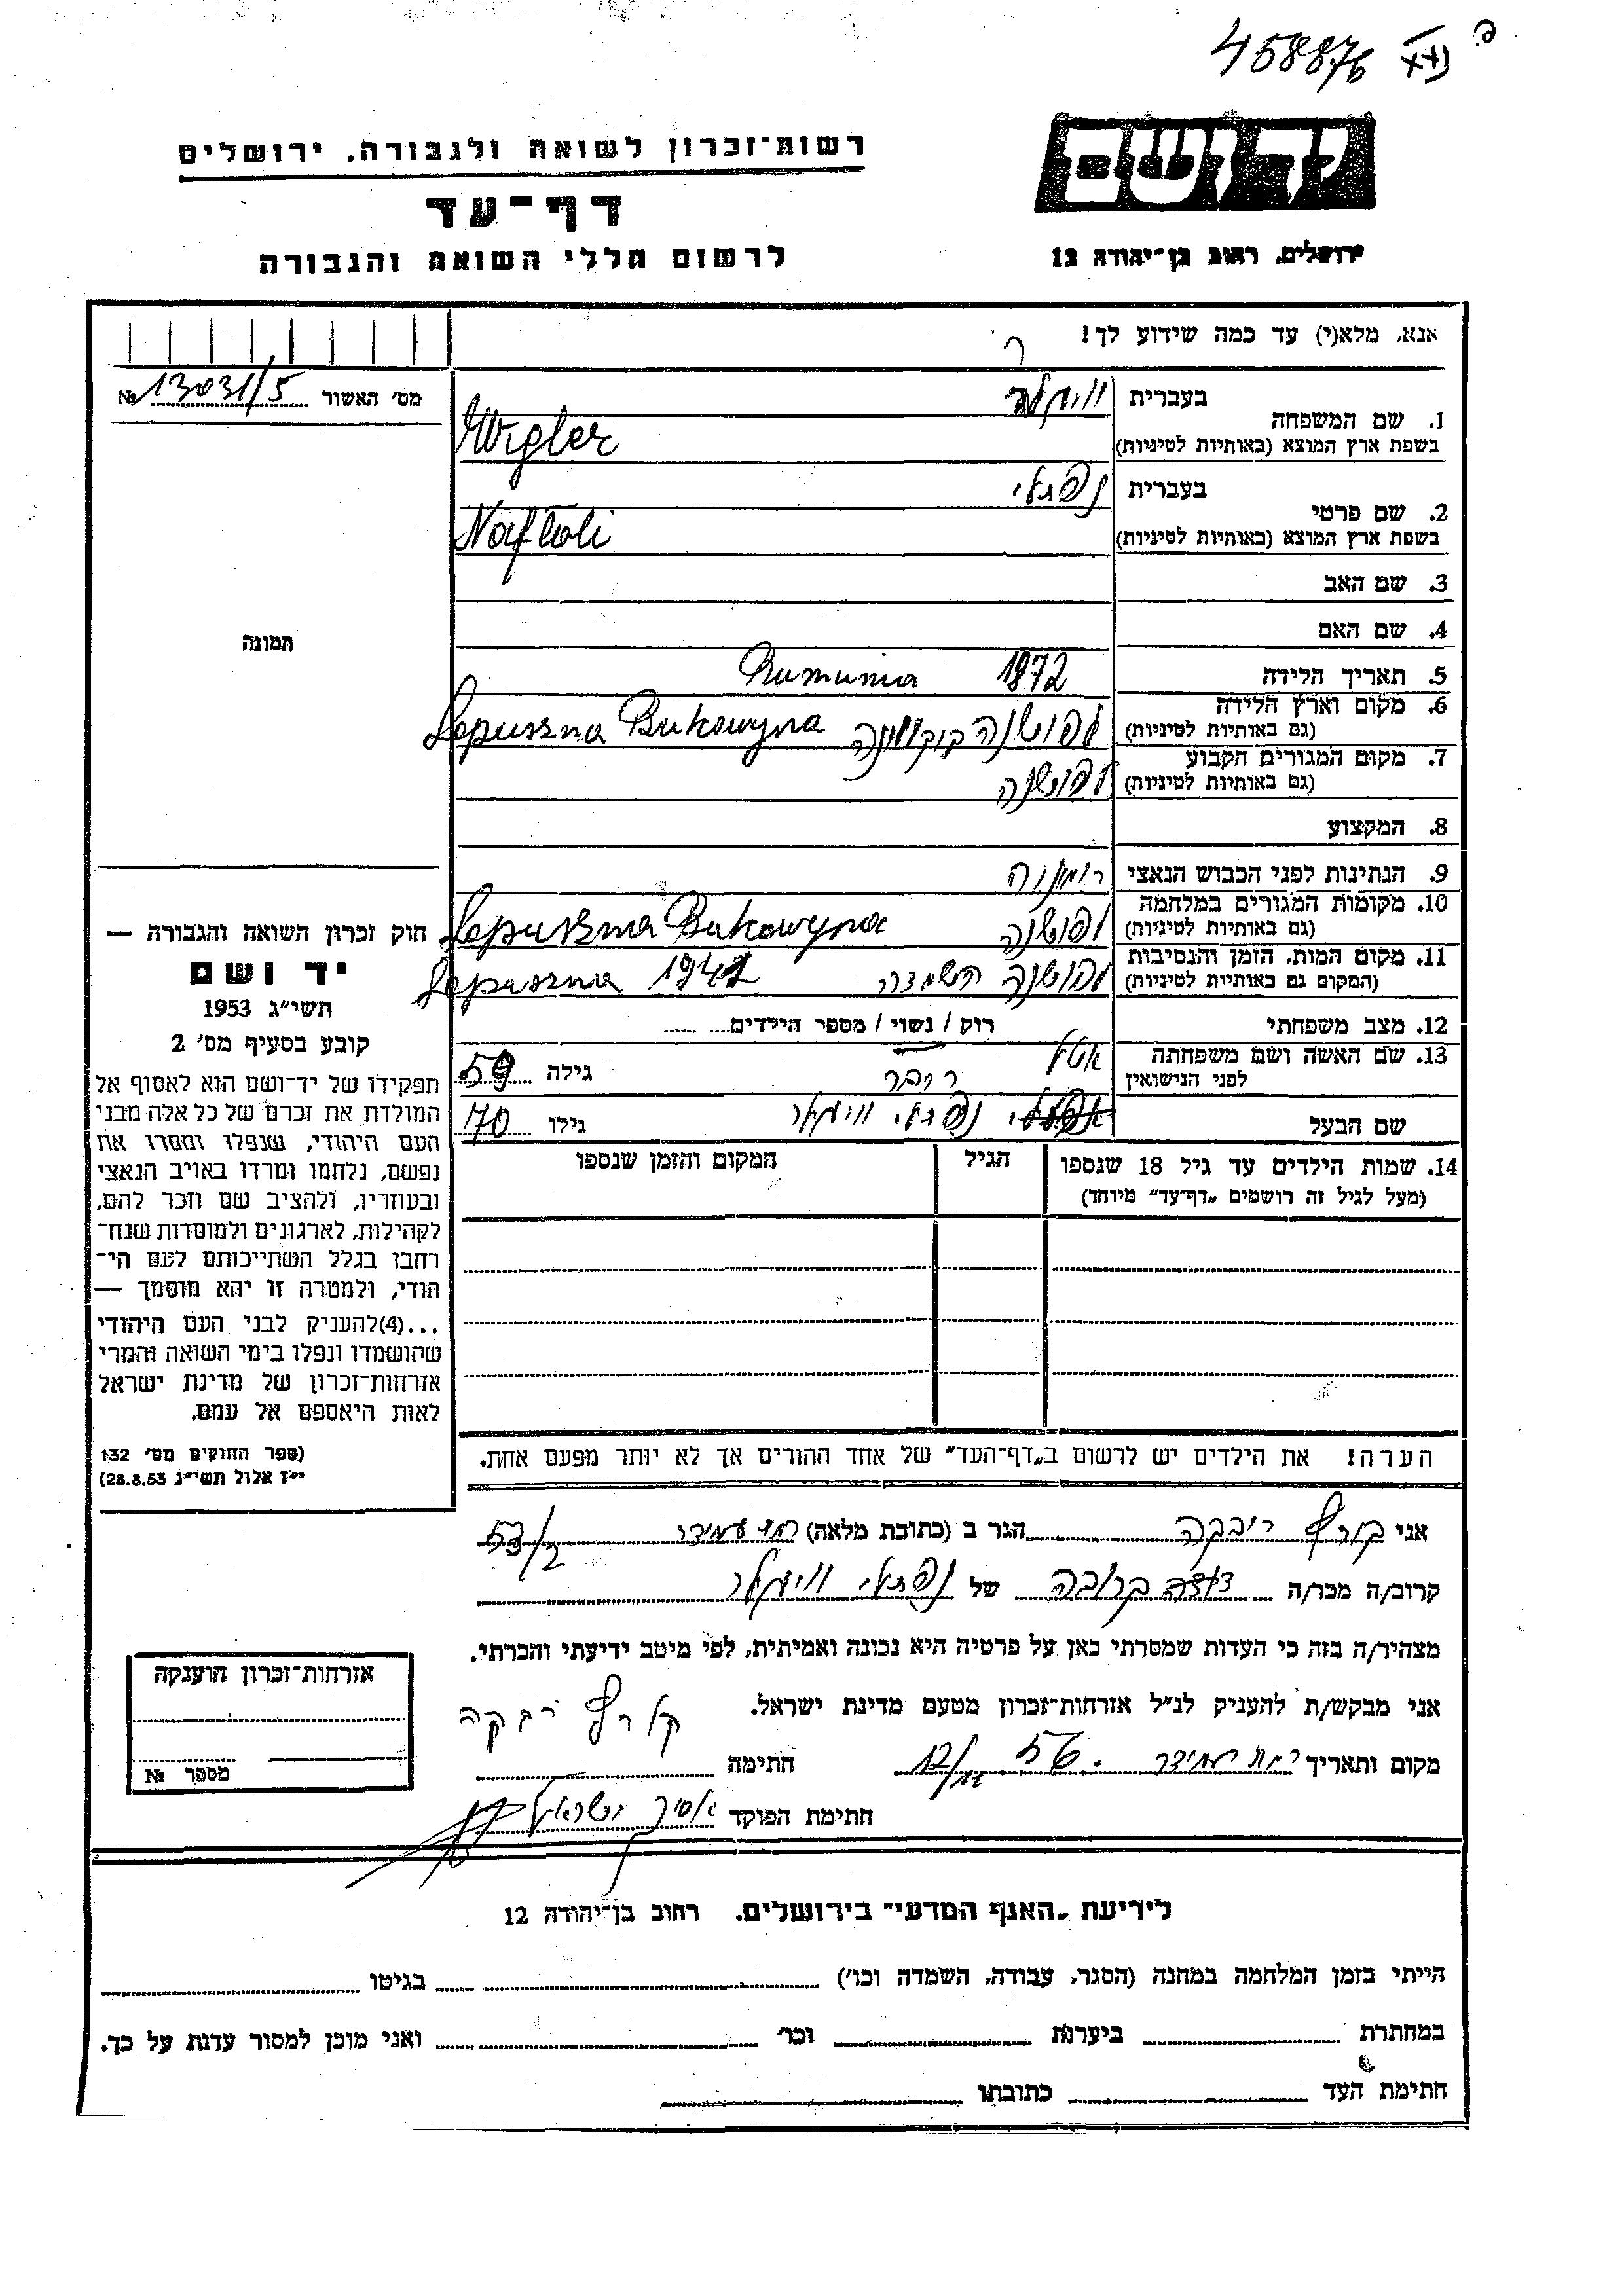 458876
רשות־זכרון לשואה ולגבורה. ירושלים
דף־עד
לרשום חללי השואה והגבורה
יד ושם
ירושלים, רחוב בן־יהודה 12
אנא, מלא(י) עד כמה שידוע לך!
מס׳ האשור № 13031/5
1. שם המשפחה
בעברית
בשפת ארץ המוצא (באותיות לטיניות) Wigler
2. שם פרטי
בעברית נפתלי
בשפת ארץ המוצא (באותיות לטיניות) Naftali
3. שם האב
4. שם האם
תמונה
5. תאריך הלידה 1872 Rumunia
6. מקום וארץ הלידה
(גם באותיות לטיניות) לפושנה בוקובינה Lopuszna Bukowyna
7. מקום המגורים הקבוע
(גם באותיות לטיניות) לפושנה
8. המקצוע
9. הנתינות לפני הכבוש הנאצי
10. מקומות המגורים במלחמה
(גם באותיות לטיניות) לפושנה Lopuszna Bukowyna
11. מקום המות, הזמן והנסיבות
(המקום גם באותיות לטיניות) לפושנה Lopuszna 1941
12. מצב משפחתי
רוק / נשוי / מספר הילדים
13. שם האשה ושם משפחתה
לפני הנישואין
גילה 59
שם הבעל נפתלי וויגלר גילו 70
14. שמות הילדים עד גיל 18 שנספו
(מעל לגיל זה רושמים „דף־עד" מיוחד)
הגיל
המקום והזמן שנספו
הערה! את הילדים יש לרשום ב„דף־העד" של אחד ההורים אך לא יותר מפעם אחת.
חוק זכרון השואה והגבורה —
יד ושם
תשי״ג 1953
קובע בסעיף מס׳ 2
תפקידו של יד־ושם הוא לאסוף אל
המולדת את זכרם של כל אלה מבני
העם היהודי, שנפלו ומסרו את
נפשם, נלחמו ומרדו באויב הנאצי
ובעוזריו, ולהציב שם וזכר להם,
לקהילות, לארגונים ולמוסדות שנח־
רחבו בגלל השתייכותם לעם הי־
הודי, ולמטרה זו יהא מוסמך —
...(4)להעניק לבני העם היהודי
שהושמדו ונפלו בימי השואה והמרי
אזרחות־זכרון של מדינת ישראל
לאות היאספם אל עמם.
(ספר החוקים מס׳ 132
י״ז אלול תשי״ג 28.8.53)
אני רבקה הגר ב (כתובת מלאה) 53/2
קרוב/ה מכר/ה של נפתלי וויגלר
מצהיר/ה בזה כי העדות שמסרתי כאן על פרטיה היא נכונה ואמיתית, לפי מיטב ידיעתי והכרתי.
אני מבקש/ת להעניק לנ״ל אזרחות־זכרון מטעם מדינת ישראל.
מקום ותאריך
חתימה רבקה
חתימת הפוקד
אזרחות־זכרון הוענקה
מספר №
לידיעת „האגף המדעי" בירושלים. רחוב בן־יהודה 12
הייתי בזמן המלחמה במחנה (הסגר, עבודה, השמדה וכו׳) בגיטו
במחתרת ביערות וכו׳ ואני מוכן למסור עדות על כך.
חתימת העד כתובתו